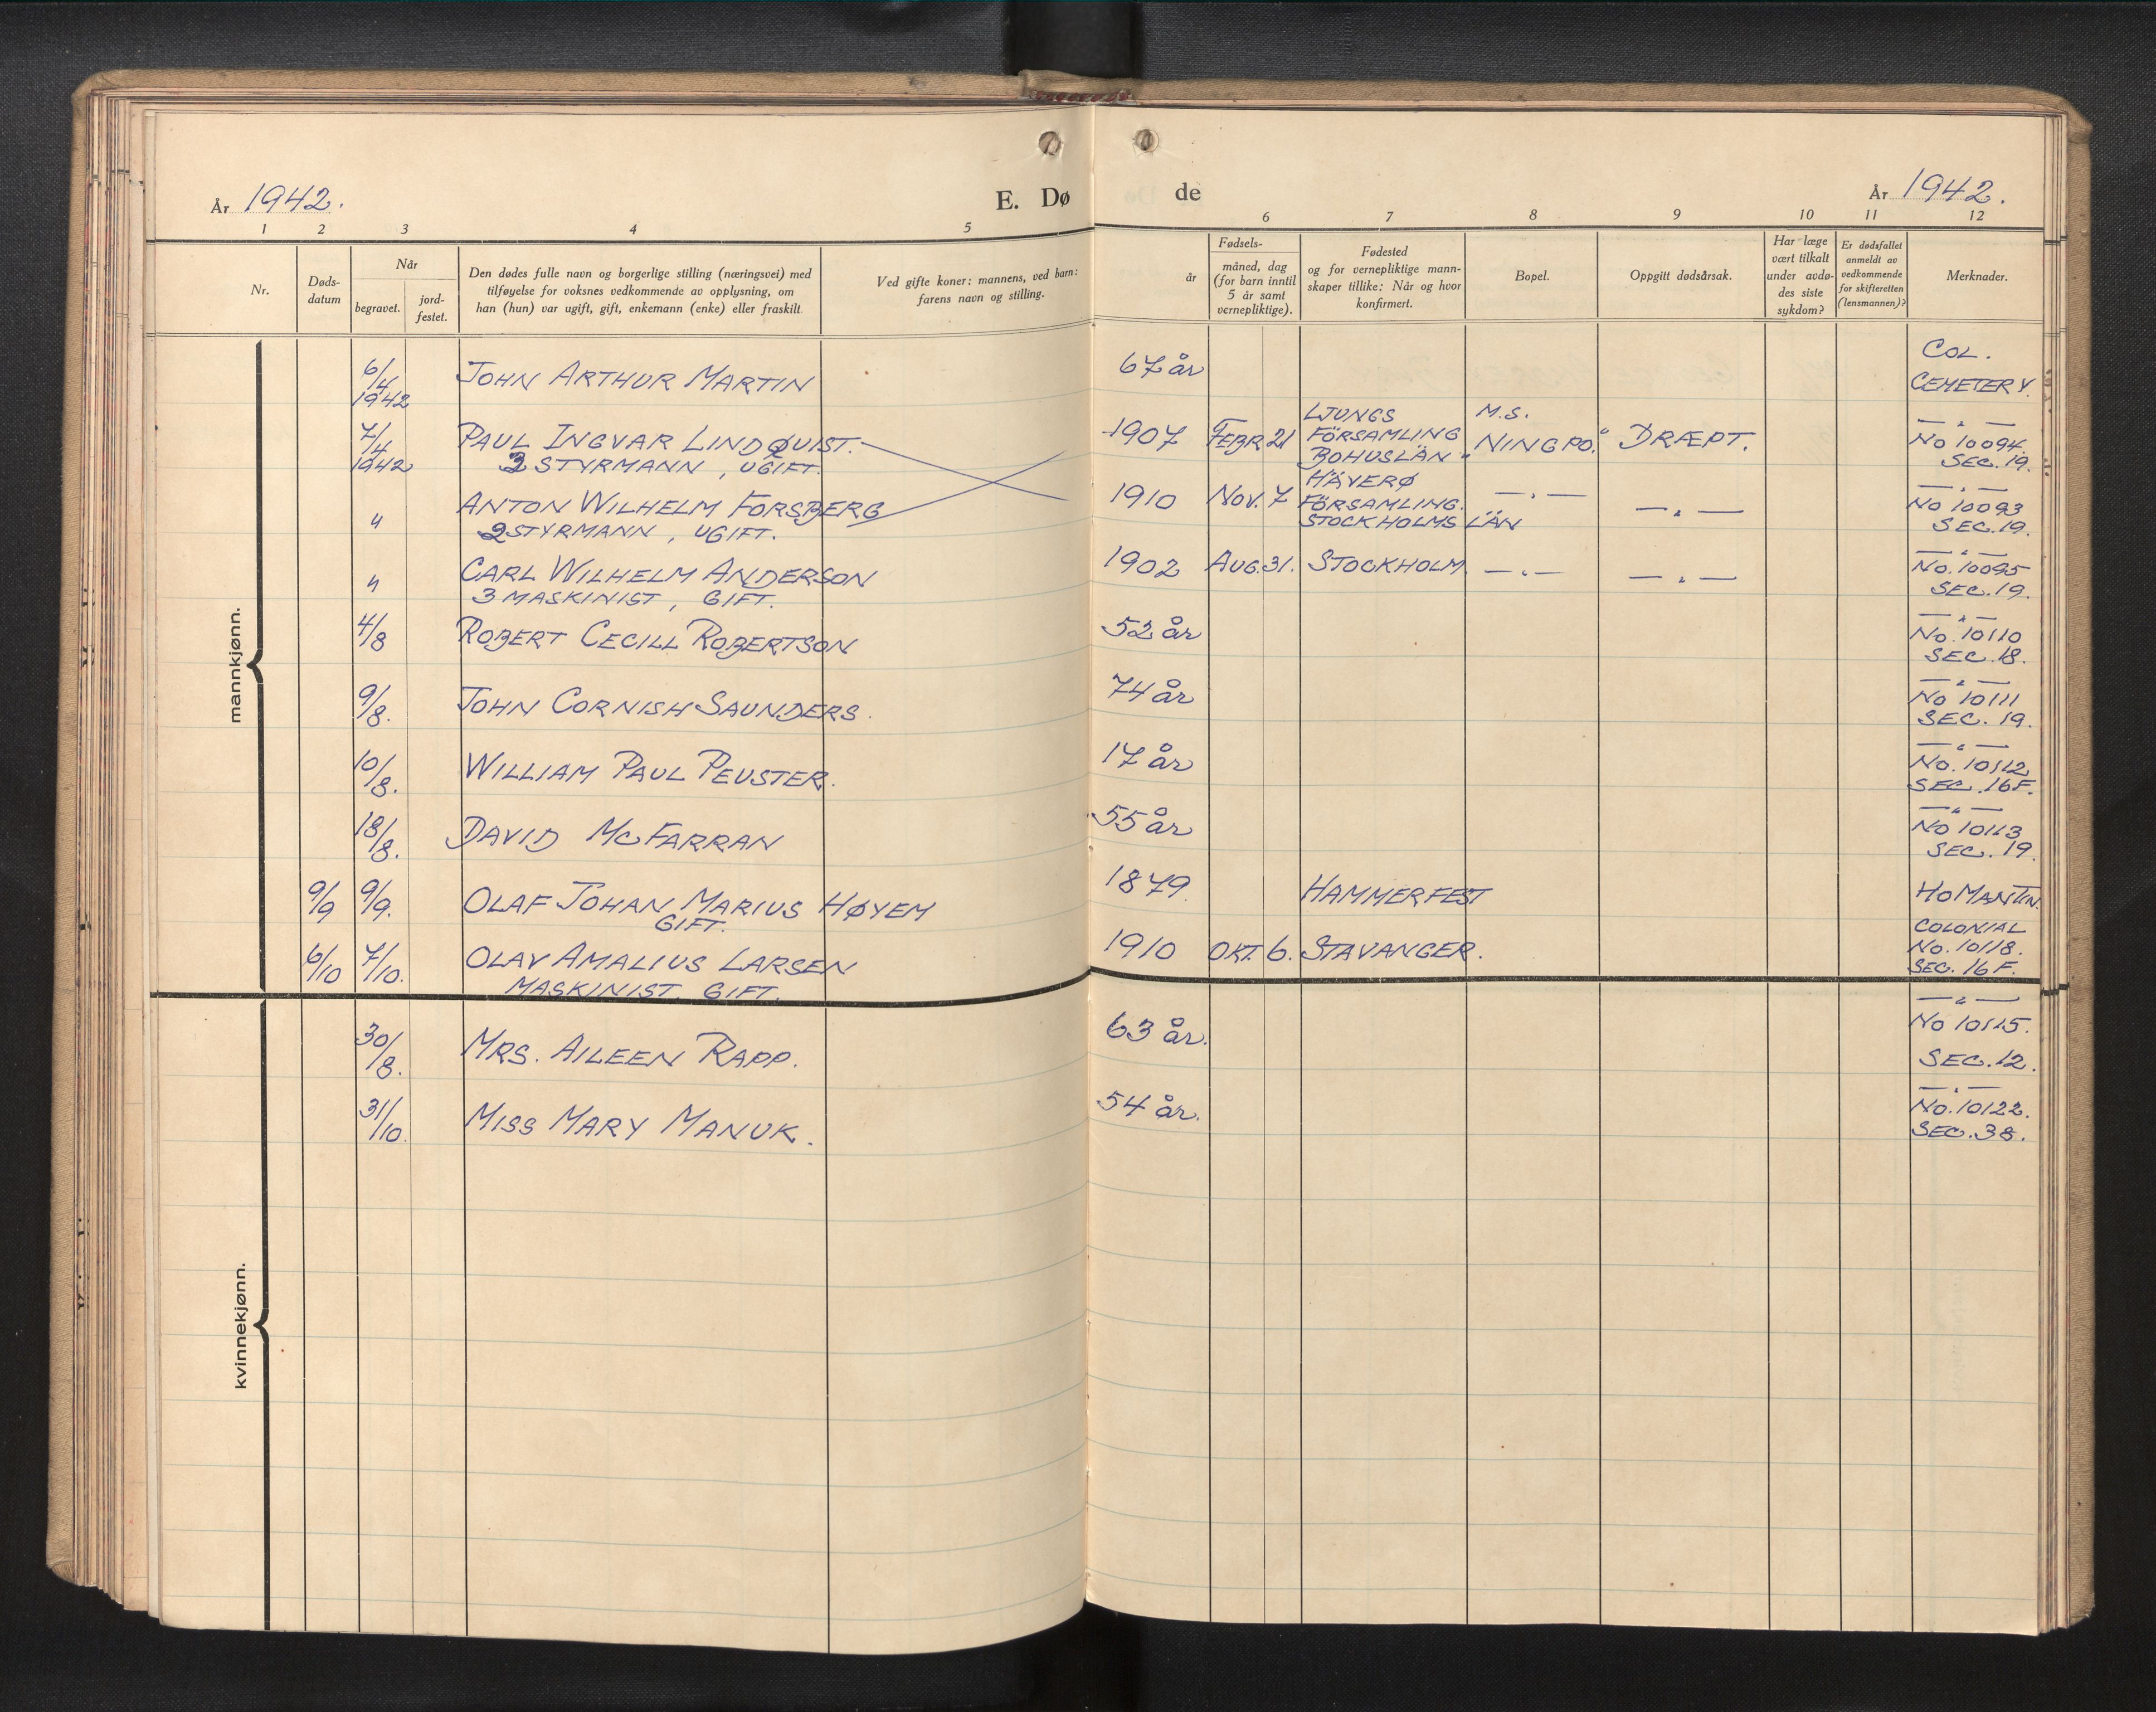 År 1942.
E. Dø
de
År 1942.
1 2 3 4 5 6 7 8 9 10 11 12
Nr.
Døds-
datum
Når
begravet.
jord-
festet.
Den dødes fulle navn og borgerlige stilling (næringsvei) med
tilføyelse for voksnes vedkommende av opplysning, om
han (hun) var ugift, gift, enkemann (enke) eller fraskilt.
Ved gifte koner: mannens, ved barn:
farens navn og stilling.
år
Fødsels-
måned, dag
(for barn inntil
5 år samt
vernepliktige).
Fødested
og for vernepliktige mann-
skaper tillike: Når og hvor
konfirmert.
Bopel.
Oppgitt dødsårsak.
Har læge
vært tilkalt
under avdø-
des siste
sykdom?
Er dødsfallet
anmeldt av
vedkommende
for skifteretten
(lensmannen)?
Merknader.
mannkjønn.
6/4
1942
JOHN ARTHUR MARTIN
67 år
COL.
CEMETERY.
7/4
1942
PAUL INGVAR LINDQUIST.
2 STYRMANN, UGIFT.
1907 FEBR 21
LJUNGS
FÖRSAMLING
BOHUSLÄN
M.S.
"NINGPO."
DRÆPT.
— " —
No 10094.
SEC. 19.
"
ANTON WILHELM FORSBERG
2 STYRMANN, UGIFT.
1910 Nov. 7
HÄVERØ
FÖRSAMLING.
STOCKHOLMS LÄN
— " —
— " —
— " —
No 10093
SEC. 19.
"
CARL WILHELM ANDERSON
3 MASKINIST, GIFT.
1902 AUG. 31. STOCKHOLM.
— " —
— " —
— " —
No. 10095
SEC. 19.
4/8
ROBERT CECILL ROBERTSON
52 år
— " —
No. 10110
SEC. 18.
9/8.
JOHN CORNISH SAUNDERS.
74 år
— " —
No 10111
SEC. 19.
10/8.
WILLIAM PAUL PEUSTER.
17 år
— " —
No. 10112
SEC. 16F.
18/8.
DAVID MCFARRAN
55 år
— " —
No 10113
SEC. 19.
9/9 9/9.
OLAF JOHAN MARIUS HØYEM
GIFT.
1879.
HAMMERFEST
HOMANTIN.
6/10 7/10.
OLAV AMALIUS LARSEN
MASKINIST. GIFT.
1910 OKT. 6. STAVANGER.
COLONIAL
No. 10118.
SEC. 16 F.
kvinnekjønn.
30/8.
MRS. AILEEN RAPP.
63 år.
— " —
No 10115.
SEC. 12.
31/10.
MISS MARY MANUK.
54 år.
— " —
No. 10122.
SEC. 38.